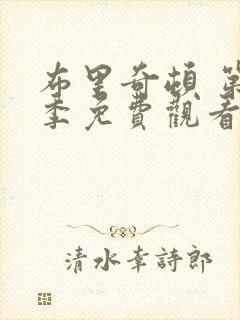 布里奇頓 第
季免費觀看
清水幸詩郎